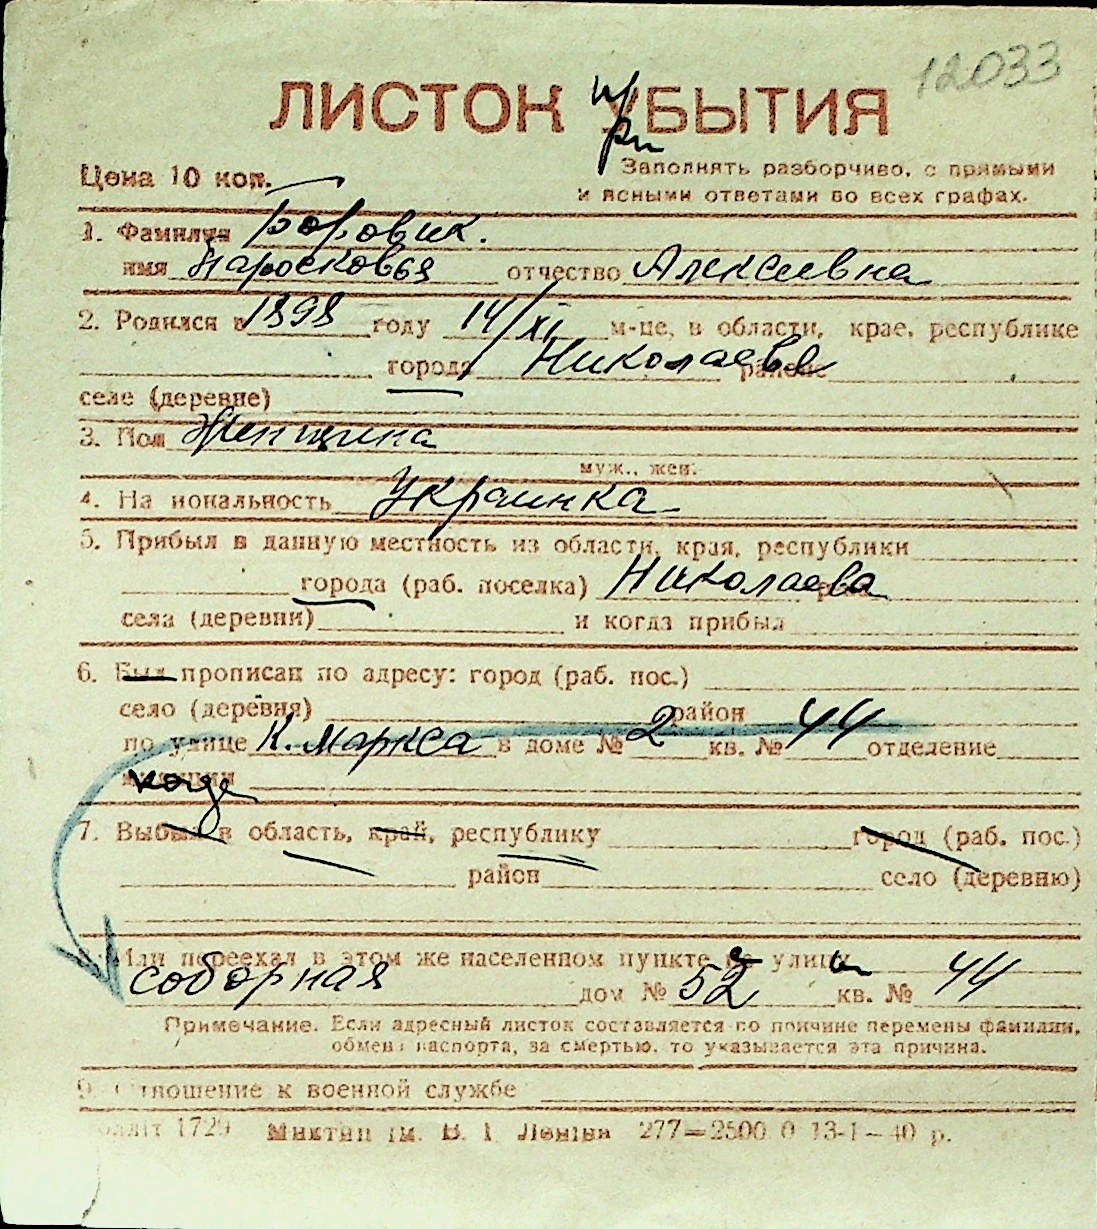 12033
ЛИСТОК УБЫТИЯ
при
Цена 10 коп.
Заполнять разборчиво, с прямыми
и ясными ответами во всех графах.
1. Фамилия Боровик.
имя Паросковья отчество Алексеевна
2. Родился в 1898 году 14/XI м-це, в области, крае, республике
города Николаева районе
селе (деревне)
3. Пол Женщина
муж., жен.
4. На иональность Украинка
5. Прибыл в данную местность из области, края, республики
города (раб. поселка) Николаева
села (деревни) и когда прибыл
6. Был прописан по адресу: город (раб. пос.)
село (деревня) район
по улице К. Маркса в доме № 2 кв. № 44 отделение
милиции
7. Выбыл в область, край, республику город (раб. пос.)
район село (деревню)
8. Или переехал в этом же населенном пункте с улицы
соборная дом № 52 кв. № 44
Примечание. Если адресный листок составляется по причине перемены фамилии,
обмена паспорта, за смертью, то указывается эта причина.
9. Отношение к военной службе
1729 им. В. І. Леніна 277—2500 0 13-1—40 р.